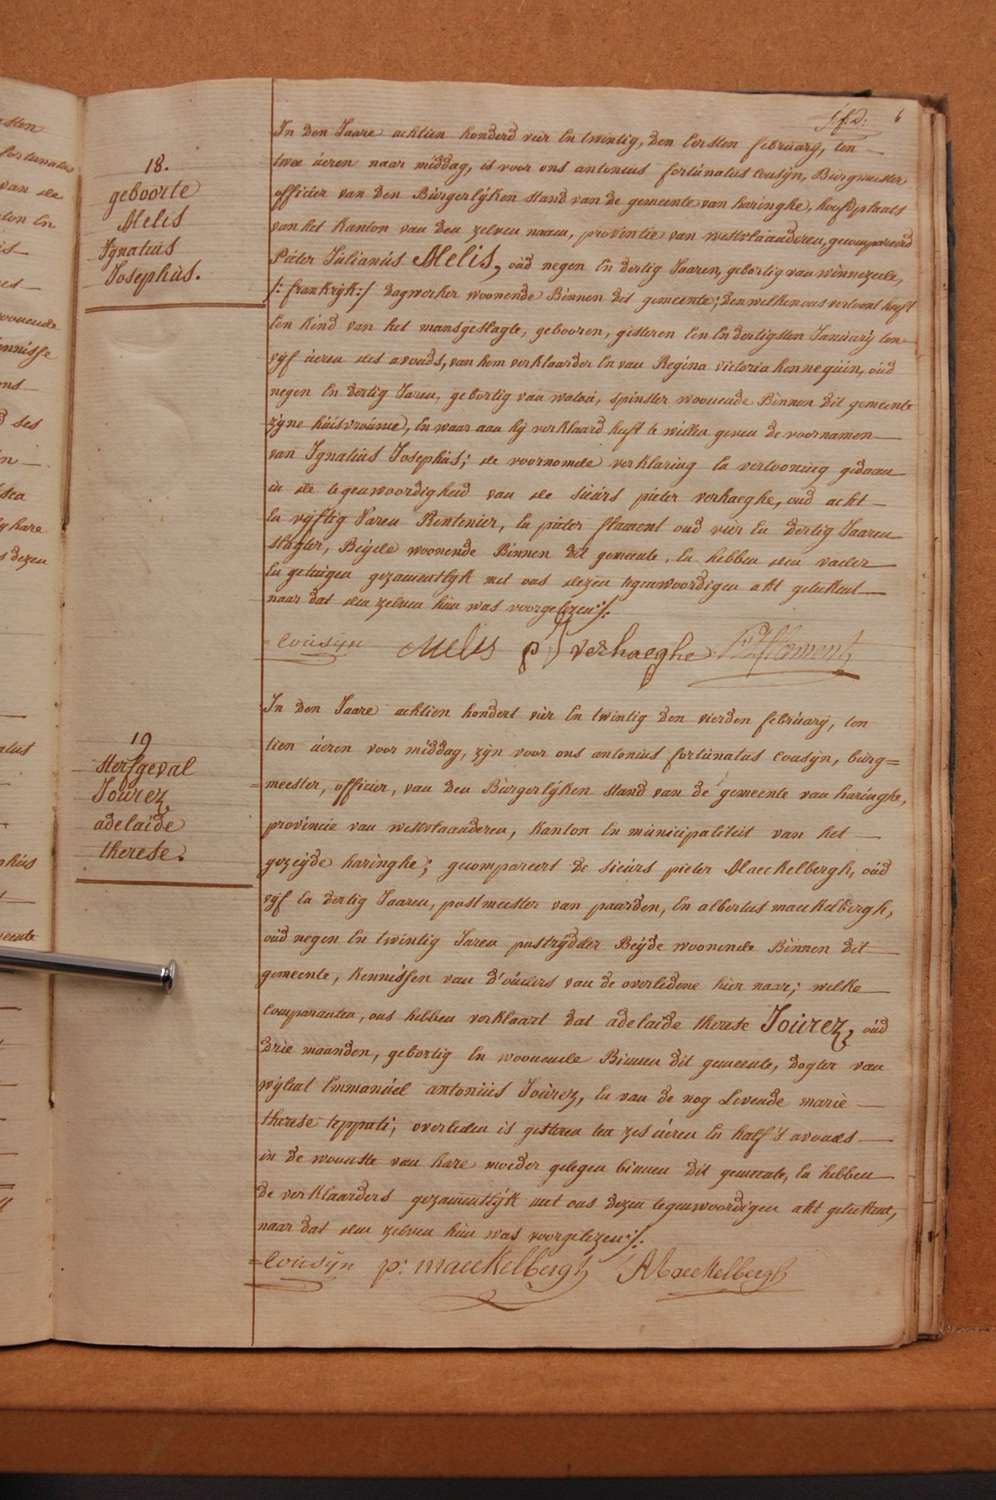 6
18.
geboorte
Melis
Ignatius
Josephus.
In den Jaare achtien honderd vier En twintig, den Eersten febrúarÿ, ten
twee úeren naar middag, is voor ons antonius fortúnatus Cousÿn, Búrgmeester
officier van den Búrgerlÿken stand van de gemeente van haringhe, hoofdplaats
van het kanton van den zelven naem, provintie van westvlaanderen, gecompareerd
Pieter Julianús Melis, oúd negen En dertig Jaaren, gebortig van winnezeele,
/: frankrÿk :/ dagwerker woonende Binnen dit gemeente; den welken ons vertoont heeft
Een kind van het mansgeslagte, gebooren, gisteren Een En dertigsten Januarÿ ten
vÿf úeren des avonds, van hem verklaarder En van Regina victoria hennequin, oúd
negen En dertig Jaren, gebortig van watou, spinster woonende Binnen dit gemeente
zÿne húisvrouwe, En waar aan hÿ verklaard heeft te willen geven de voornamen
van Ignatiús Josephús; de voornomde verklaring En vertooning gedaan
in de tegenwoordigheid van de sieúrs pieter verhaeghe, oud acht
En vÿftig Jaren Rentenier, En pieter flament oud vier En dertig Jaaren
slagter, Beÿde woonende Binnen dit gemeente, En hebben den vader
En getuigen gezamentlÿk met ons dezen tegenwoordigen akt geteekent
naar dat den zelven hún was voorgelezen :/.
Cousÿn Melis p verhaeghe P flament
19
sterfgeval
Joúrez,
adelaïde
therese.
In den Jaare achtien hondert vier En twintig den vierden febrúarÿ, ten
tien úeren voor middag, zÿn voor ons antonius fortúnatus Cousÿn, búrg=
meester, officier, van den Búrgerlÿken stand van de gemeente van haringhe,
provincie van westvlaanderen, kanton En múnicipaliteit van het
gezeÿde haringhe; gecompareert de sieúrs pieter Maeckelbergh, oúd
vÿf En dertig Jaaren, postmeester van paarden, En albertus maeckelbergh,
oúd negen En twintig Jaren postrÿdder Beÿde woonende Binnen dit
gemeente, kennissen van d'oúders van de overledene hier naar; welke
Comparanten, ons hebben verklaart dat adelaide therese Joúrez, oúd
drie maanden, gebortig En woonende Binnen dit gemeente, dogter van
wÿlent Emmanúel antoniús Joúrez, En van de nog Levende marie
therese teppati; overleden is gisteren ten zes úeren En half 's avonds
in de woonste van hare moeder gelegen binnen dit gemeente, En hebben
de verklaarders gezamentlÿk met ons dezen tegenwoordigen akt geteekent,
naar dat den zelven hún was voorgelezen :/.
Cousÿn p: maeckelbergh A Maeckelbergh